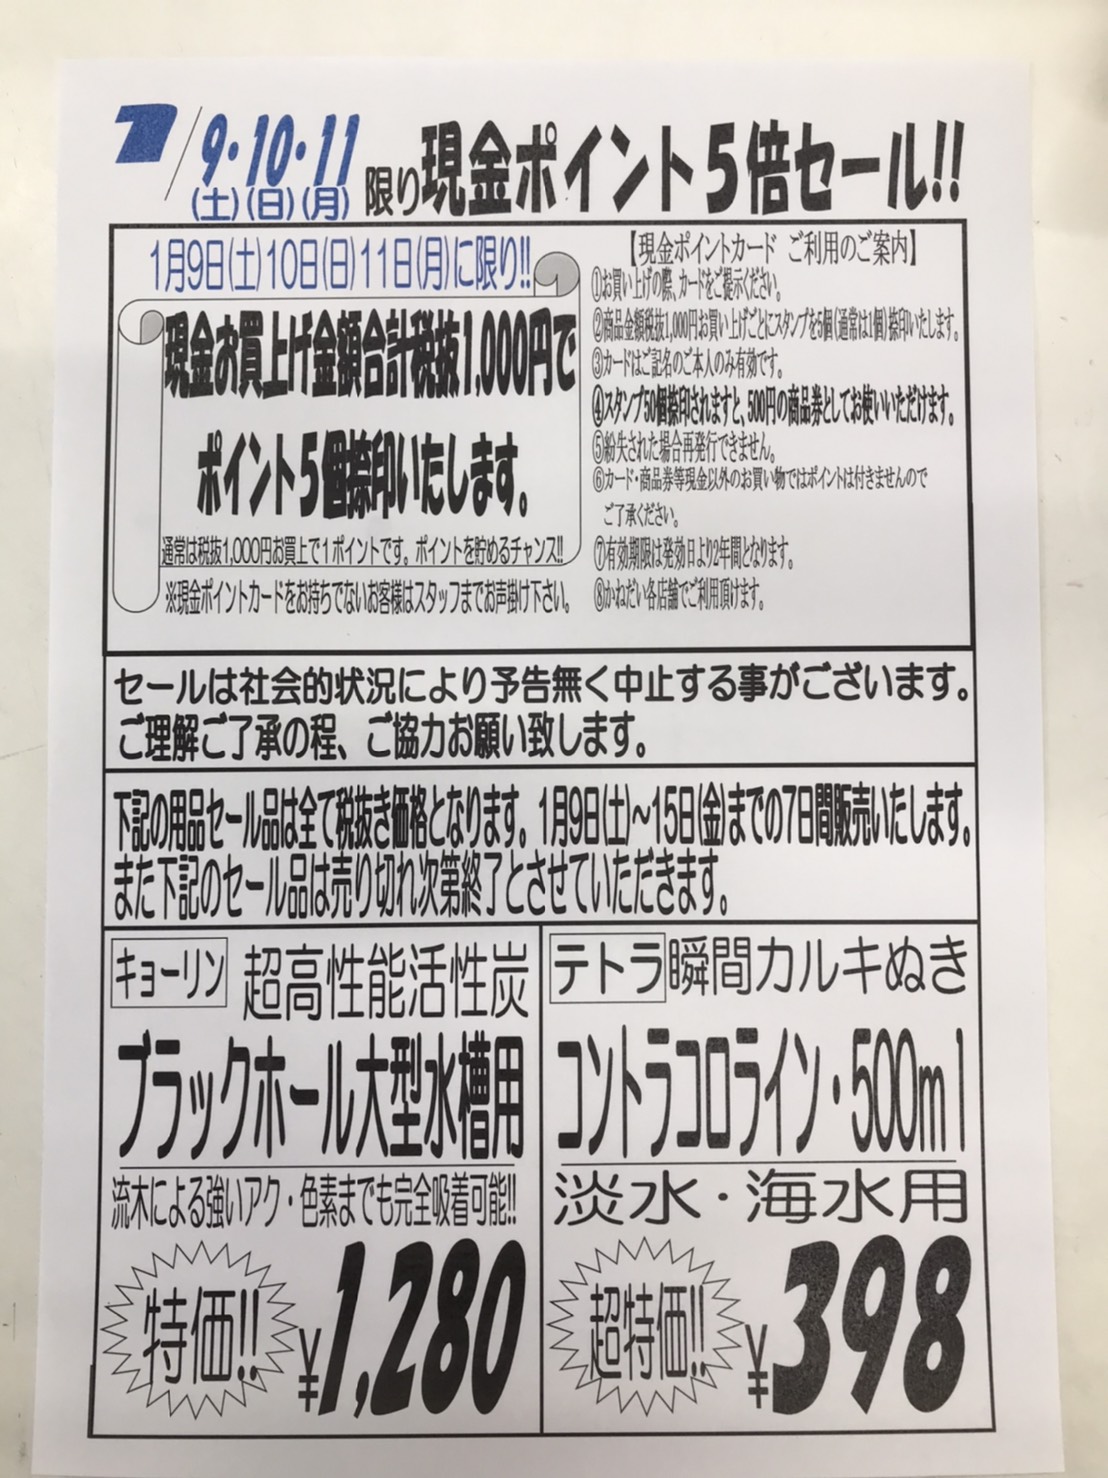 1/9・10・11
(土)(日)(月)
限り現金ポイント5倍セール!!
1月9日(土)10日(日)11日(月)に限り!!
現金お買上げ金額合計税抜1,000円で
ポイント5個捺印いたします。
通常は税抜1,000円お買上で1ポイントです。ポイントを貯めるチャンス!!
※現金ポイントカードをお持ちでないお客様はスタッフまでお声掛け下さい。
【現金ポイントカード ご利用のご案内】
①お買い上げの際、カードをご提示ください。
②商品金額税抜1,000円お買い上げごとにスタンプを5個(通常は1個)捺印いたします。
③カードはご記名のご本人のみ有効です。
④スタンプ50個捺印されますと、500円の商品券としてお使いいただけます。
⑤紛失された場合再発行できません。
⑥カード・商品券等現金以外のお買い物ではポイントは付きませんので
ご了承ください。
⑦有効期限は発効日より2年間となります。
⑧かねだい各店舗でご利用頂けます。
セールは社会的状況により予告無く中止する事がございます。
ご理解ご了承の程、ご協力お願い致します。
下記の用品セール品は全て税抜き価格となります。1月9日(土)～15日(金)までの7日間販売いたします。
また下記のセール品は売り切れ次第終了とさせていただきます。
キョーリン 超高性能活性炭
ブラックホール大型水槽用
流木による強いアク・色素までも完全吸着可能!!
特価!! ¥1,280
テトラ 瞬間カルキぬき
コントラコロライン・500ml
淡水・海水用
超特価!! ¥398